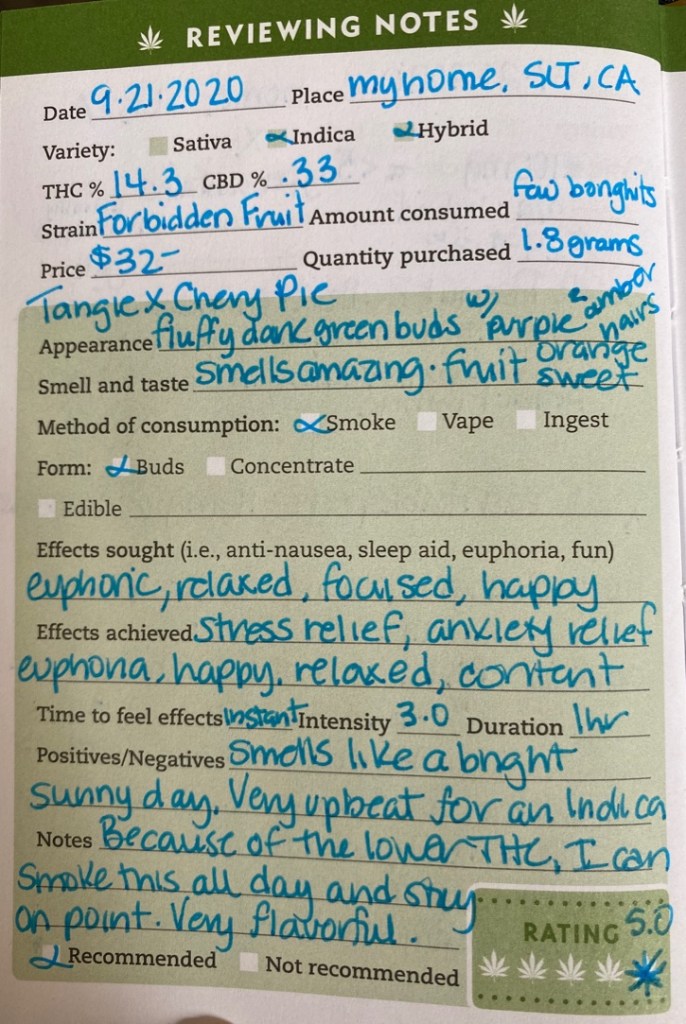 REVIEWING NOTES
Date 9.21.2020 Place my home, SLT, CA
Variety: Sativa Indica Hybrid
THC % 14.3 CBD % .33
Strain Forbidden Fruit Amount consumed few bonghits
Price $32- Quantity purchased 1.8 grams
Tangie x Cherry Pie
Appearance fluffy dark green buds w/ purple & amber hairs
Smell and taste smells amazing. fruit orange sweet
Method of consumption: Smoke Vape Ingest
Form: Buds Concentrate
Edible
Effects sought (i.e., anti-nausea, sleep aid, euphoria, fun)
euphoric, relaxed, focused, happy
Effects achieved stress relief, anxiety relief
euphoria, happy, relaxed, content
Time to feel effects instant Intensity 3.0 Duration 1hr
Positives/Negatives smells like a bright
sunny day. Very upbeat for an Indica
Notes Because of the lower THC, I can
smoke this all day and stay
on point. Very flavorful.
RATING 5.0
Recommended Not recommended